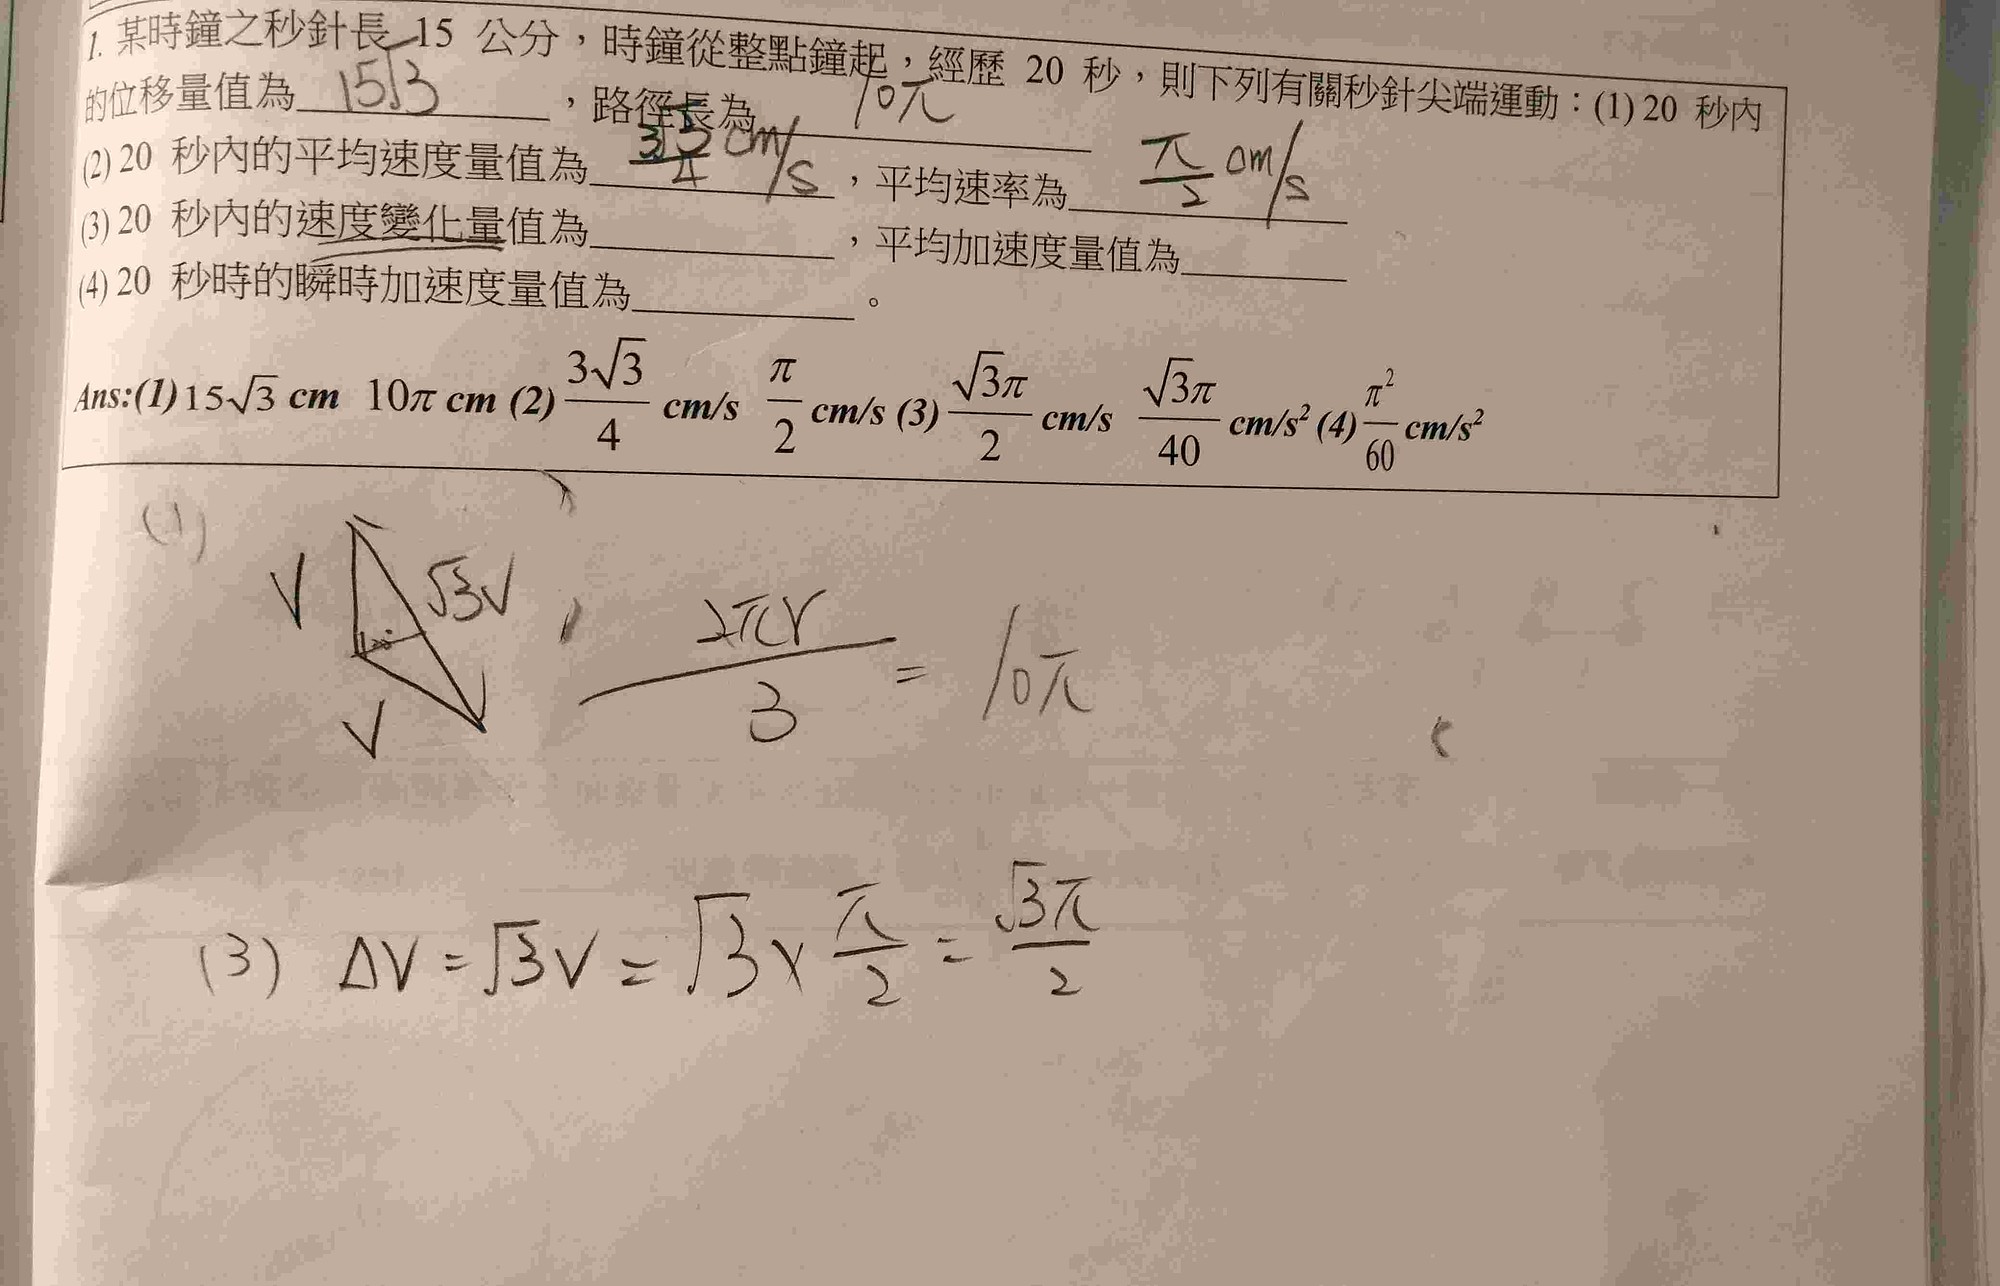 1. 某時鐘之秒針長 15 公分，時鐘從整點鐘起，經歷 20 秒，則下列有關秒針尖端運動：(1) 20 秒內
的位移量值為 15√3 ，路徑長為 10π
(2) 20 秒內的平均速度量值為 3√3/4 cm/s ，平均速率為 π/2 cm/s
(3) 20 秒內的速度變化量值為 ，平均加速度量值為
(4) 20 秒時的瞬時加速度量值為 。
Ans:(1) 15√3 cm 10π cm (2) 3√3/4 cm/s π/2 cm/s (3) √3π/2 cm/s √3π/40 cm/s² (4) π²/60 cm/s²
(1)
V √3V , 2πr/3 = 10π
V
(3) ΔV = √3V = √3 × π/2 = √3π/2